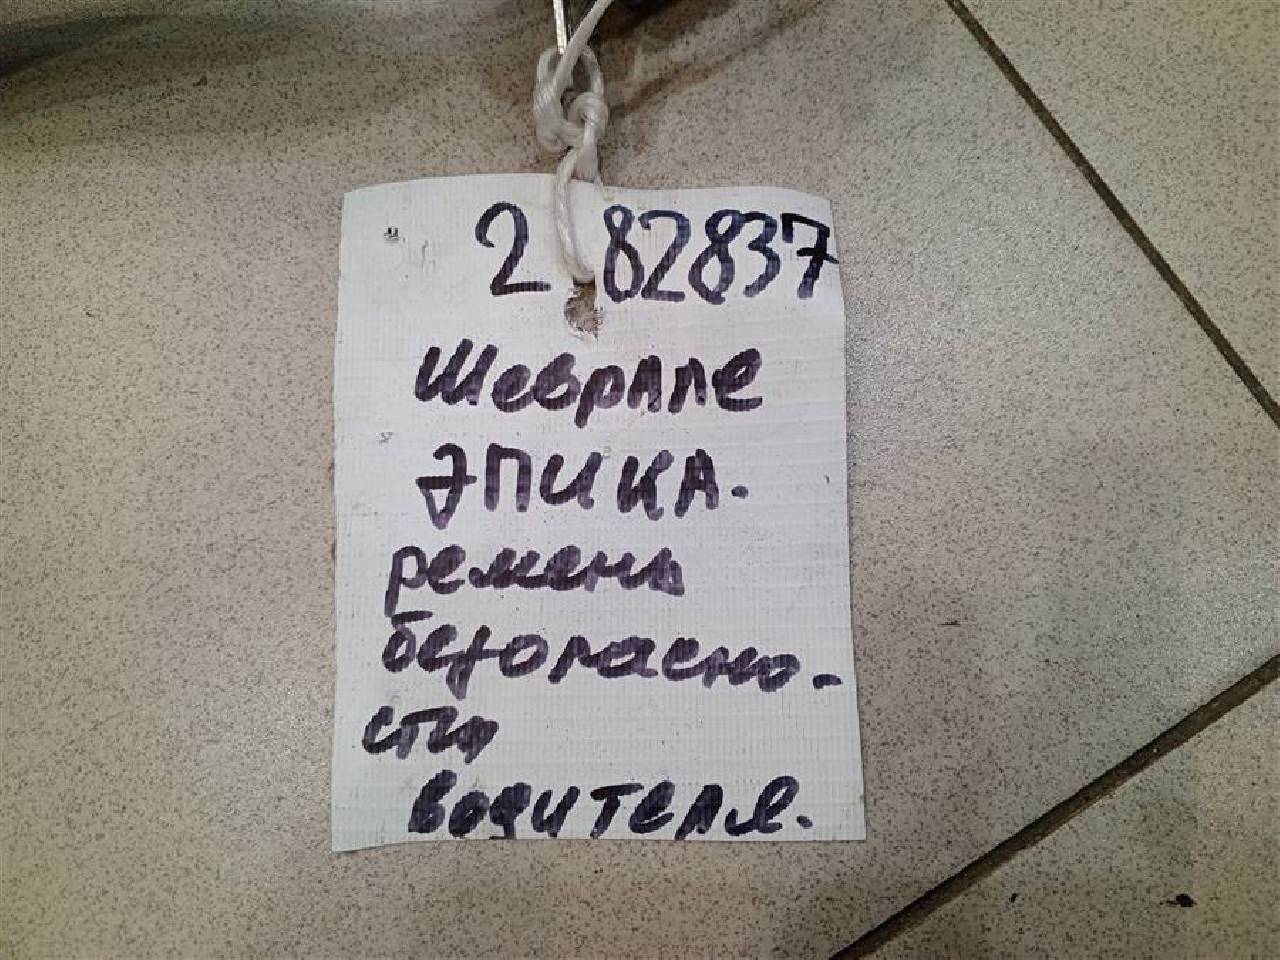 2 82837
Шевроле
ЭПИКА.
ремень
безопасно-
сти
водителя.